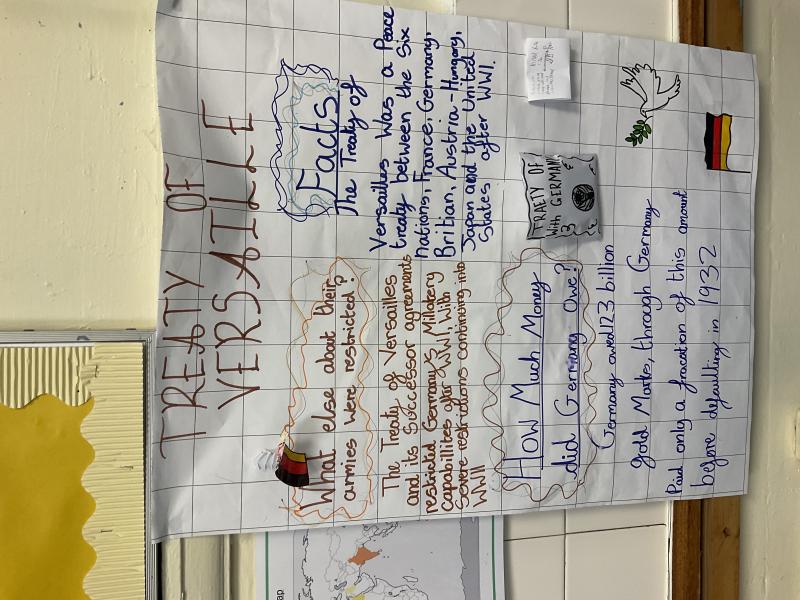 TREATY OF
VERSAILLE
What else about their
armies were restricted?
The Treaty of Versailles
and its Successor agreements
restricted Germany's Millarery
capabillites after WWI, with y
severe restrictions continuing into
WWII
Facts
The Treaty of
Versailles Was a Peace
treaty between the Six
nations, France, Germany,
Britian, Austria-Hungary,
Japan and the United
States after WWI.
How Much Money
did Germany Owe?
Germany owed 123 billion
gold Marks, through Germany
Paid only a fracation of this amount
before defaulting in 1932
TRAETY OF
With GERMANY
13
ap